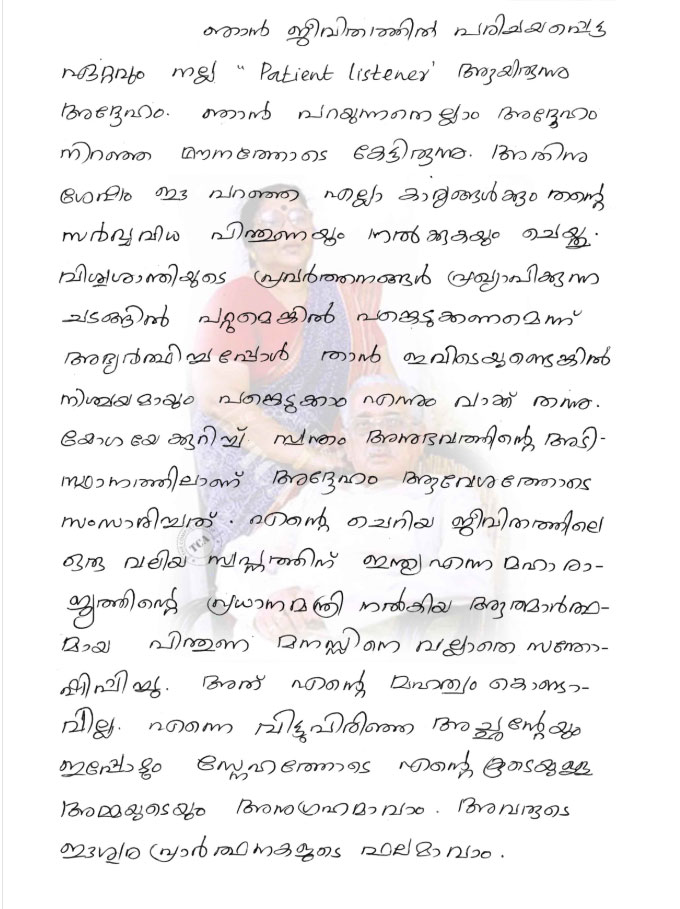 ഞാൻ ജീവിതത്തിൽ പരിചയപ്പെട്ട
ഏറ്റവും നല്ല " Patient listener' ആയിരുന്നു
അദ്ദേഹം. ഞാൻ പറയുന്നതെല്ലാം അദ്ദേഹം
നിറഞ്ഞ മൗനത്തോടെ കേട്ടിരുന്നു. അതിനു
ശേഷം ഈ പറഞ്ഞ എല്ലാ കാര്യങ്ങൾക്കും തന്റെ
സർവ്വവിധ പിന്തുണയും നൽകുകയും ചെയ്തു.
വിശ്വശാന്തിയുടെ പ്രവർത്തനങ്ങൾ പ്രഖ്യാപിക്കുന്ന
ചടങ്ങിൽ പറ്റുമെങ്കിൽ പങ്കെടുക്കണമെന്ന്
അഭ്യർത്ഥിച്ചപ്പോൾ താൻ ഇവിടെയുണ്ടെങ്കിൽ
നിശ്ചയമായും പങ്കെടുക്കാം എന്നും വാക്ക് തന്നു.
യോഗയെ കുറിച്ച് സ്വന്തം അനുഭവത്തിന്റെ അടി-
സ്ഥാനത്തിലാണ് അദ്ദേഹം ആവേശത്തോടെ
സംസാരിച്ചത്. എന്റെ ചെറിയ ജീവിതത്തിലെ
ഒരു വലിയ സ്വപ്നത്തിന് ഇന്ത്യ എന്ന മഹാരാ-
ജ്യത്തിന്റെ പ്രധാനമന്ത്രി നൽകിയ ആത്മാർത്ഥ-
മായ പിന്തുണ മനസ്സിനെ വല്ലാതെ സന്തോ-
ഷിപ്പിച്ചു. അത് എന്റെ മഹത്വം കൊണ്ടാ-
വില്ല. എന്നെ വിട്ടുപിരിഞ്ഞ അച്ഛന്റേയും
ഇപ്പോഴും സ്നേഹത്തോടെ എന്റെ കൂടെയുള്ള
അമ്മയുടെയും അനുഗ്രഹമാവാം. അവരുടെ
ഈശ്വര പ്രാർത്ഥനകളുടെ ഫലമാവാം.
TCA